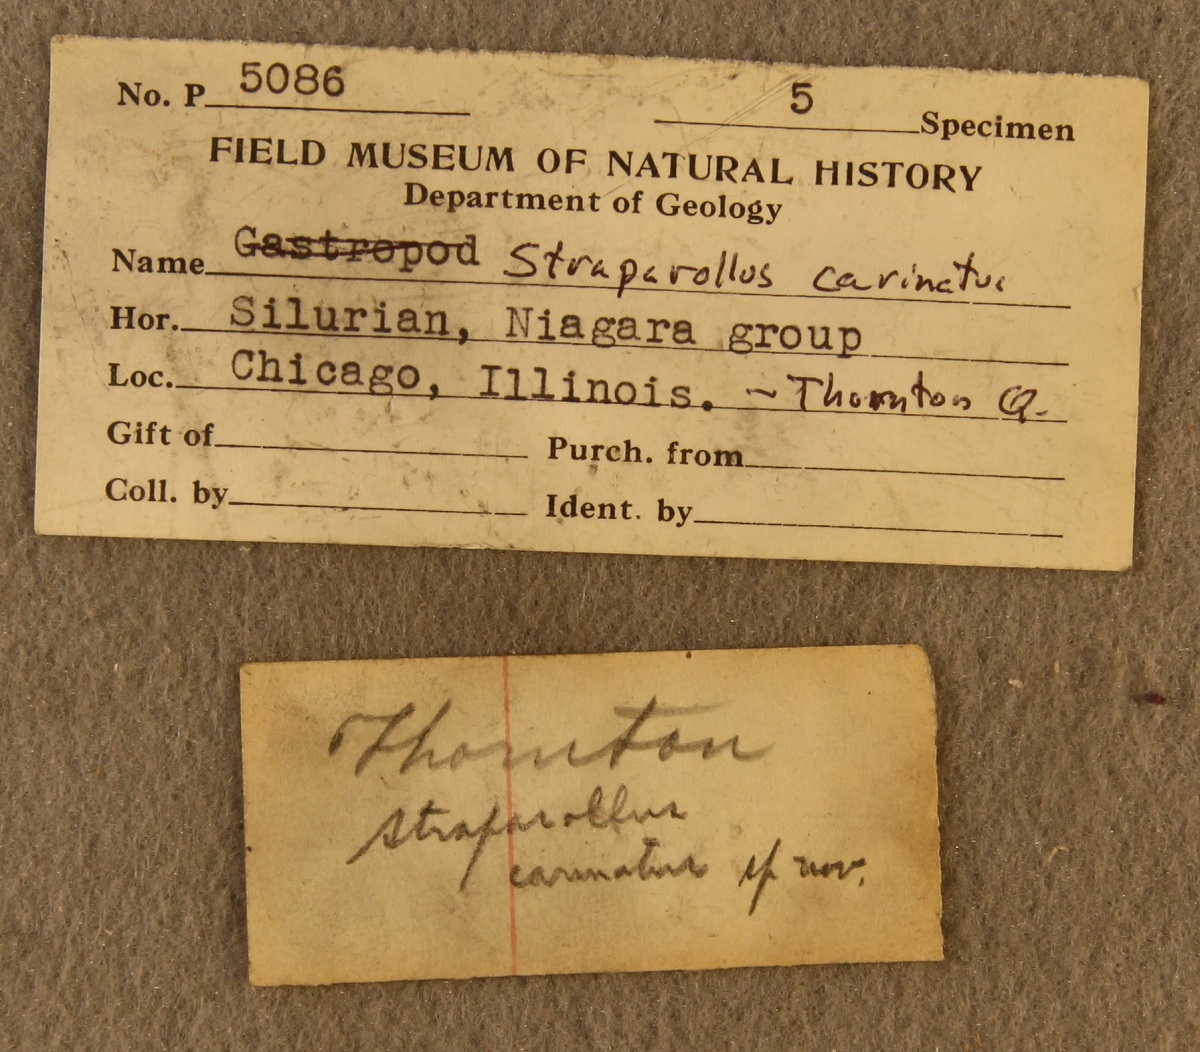 No. P 5086 5 Specimen
FIELD MUSEUM OF NATURAL HISTORY
Department of Geology
Name Gastropod Straparollus carinatus
Hor. Silurian, Niagara group
Loc. Chicago, Illinois. - Thornton Q.
Gift of Purch. from
Coll. by Ident. by
Thornton
Straparollus
carinatus sp nov.